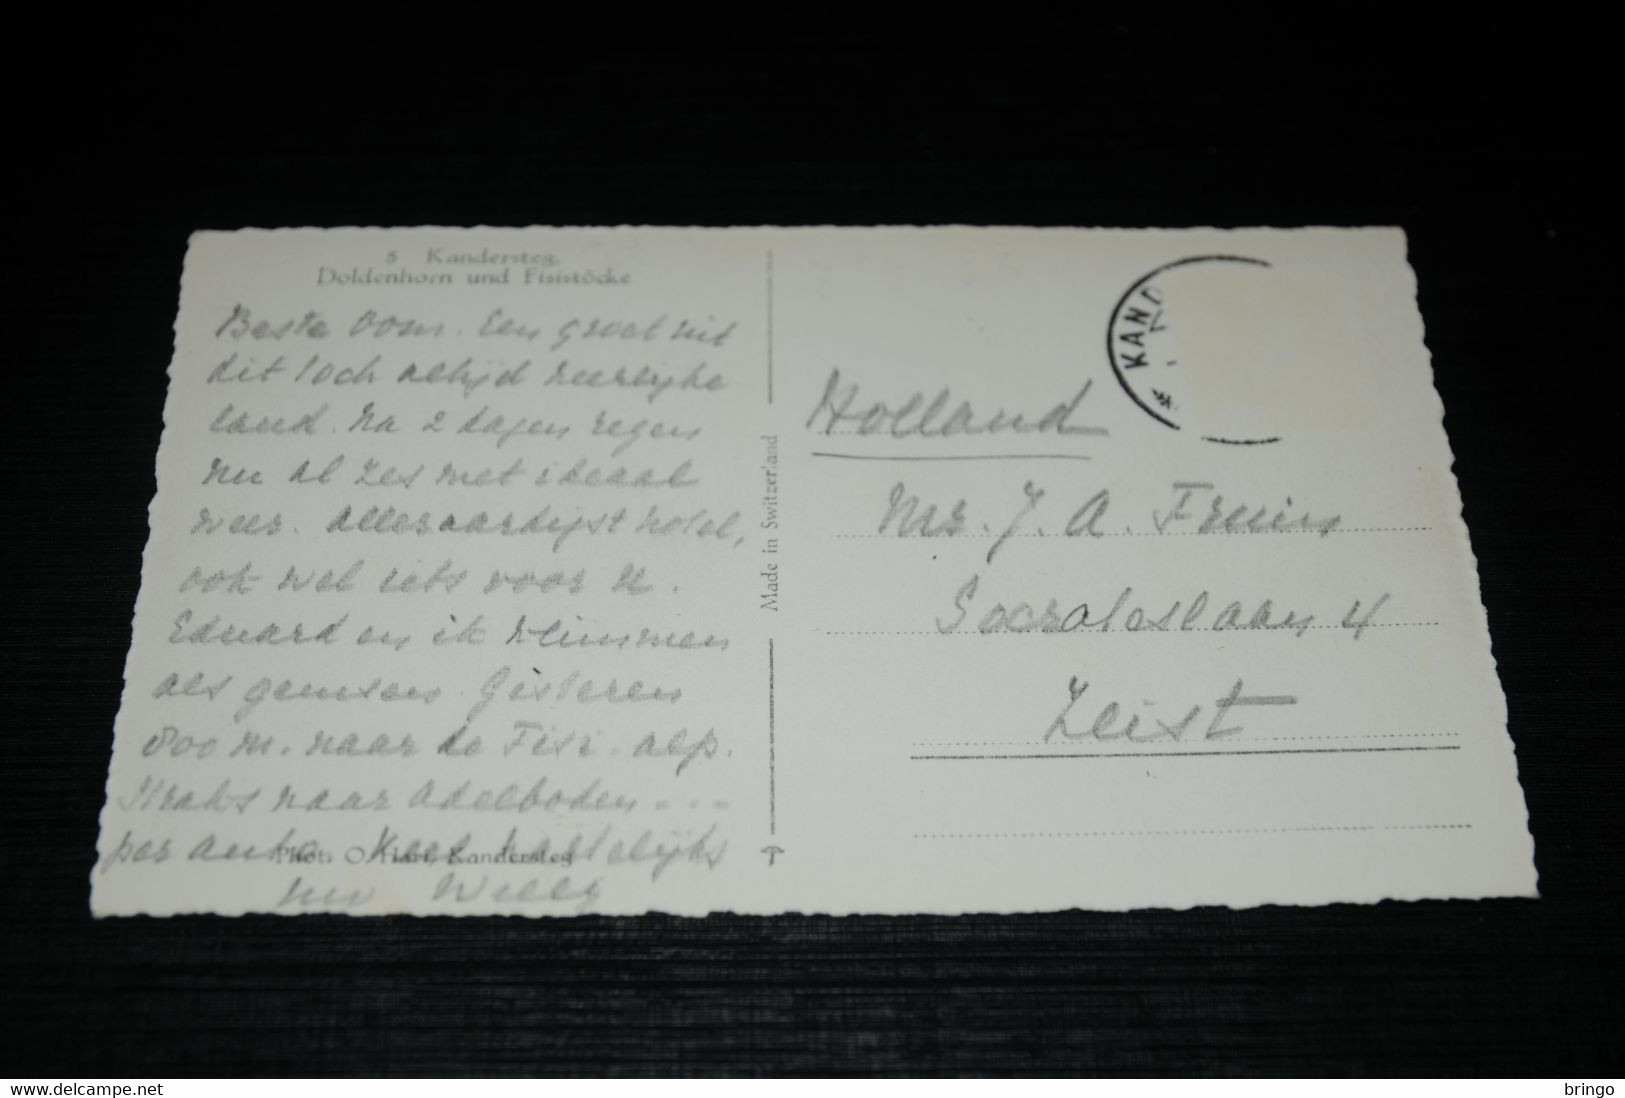 5 Kandersteg.
Doldenhorn und Fisistöcke
Beste Oom. Een groet uit
dit toch altijd heerlijke
land. Na 2 dagen regen
nu al zes met ideaal
weer. Alleraardigst hotel,
ook wel iets voor U.
Eduard en ik klimmen
als gemsen. Gisteren
800 m. naar de Fisi-alp.
Straks naar Adelboden...
per auto. Heel hartelijks
Phot. O. Hari, Kandersteg
uw Willy
Made in Switzerland
KAND
Holland
Mr. J. A. Fruin
Socrateslaan 4
Zeist
www.delcampe.net
bringo